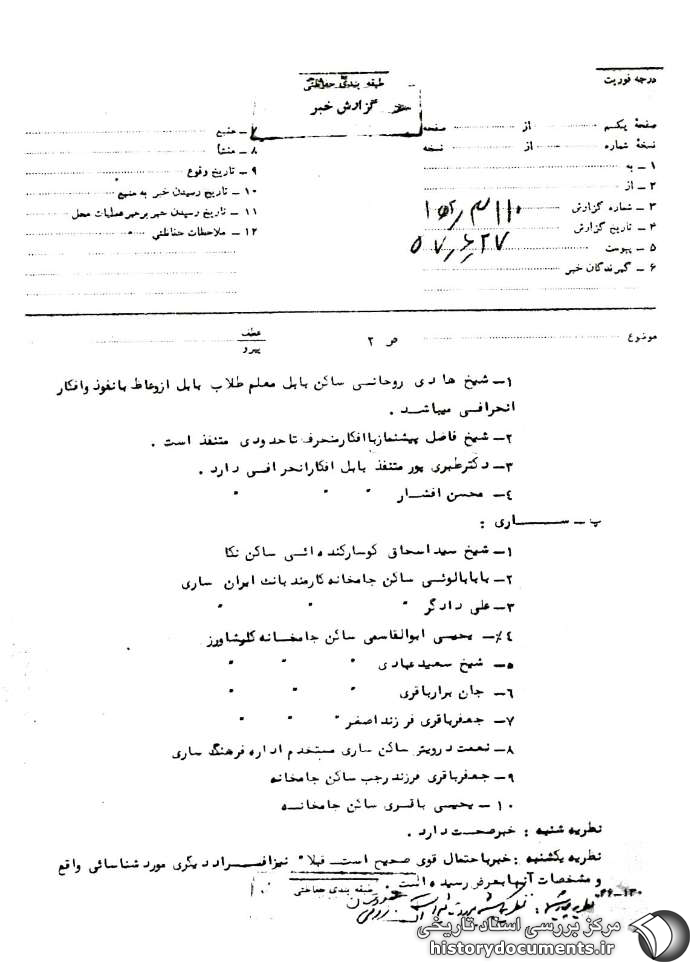 درجه فوریت
طبقه بندی حفاظتی
گزارش خبر
صفحه یکم ........ از ........ صفحه
نسخه شماره ........ از ........ نسخه
۱ - به
۲ - از
۳ - شماره گزارش
۴ - تاریخ گزارش ۵۷/۶/۲۷
۵ - پیوست
۶ - گیرندگان خبر
۷ - منبع
۸ - منشأ
۹ - تاریخ وقوع
۱۰ - تاریخ رسیدن خبر به منبع
۱۱ - تاریخ رسیدن خبر برهبر عملیات محل
۱۲ - ملاحظات حفاظتی
موضوع ص ۲ عطف
پیرو
۱- شیخ هادی روحانی ساکن بابل معلم طلاب بابل ازوعاظ بانفوذ وافکار
انحرافی میباشد .
۲- شیخ فاضل پیشنمازباافکارمنحرف تاحدودی متنفذ است .
۳- دکترطبری پور متنفذ بابل افکارانحرافی دارد .
۴- محسن افشار " " "
پ - ساری :
۱- شیخ سیداسحاق کوسارکنده ائی ساکن نکا
۲- بابابالوئی ساکن جامخانه کارمندبانک ایران ساری
۳- علی دادگر " " "
۴- یحیی ابوالقاسمی ساکن جامخانه کشاورز
۵- شیخ سعیدعبادی " " "
۶- جان برارباقری " " "
۷- جعفرباقری فرزنداصغر " " "
۸- نعمت درویش ساکن ساری مستخدم اداره فرهنگ ساری
۹- جعفرباقری فرزندرجب ساکن جامخانه
۱۰- یحیی باقری ساکن جامخانه
نظریه شنبه : خبرصحت دارد .
نظریه یکشنبه : خبرباحتمال قوی صحیح است . قبلا" نیزافراددیگری موردشناسائی واقع
و مشخصات آنهابعرض رسیده است .
طبقه بندی حفاظتی
مرکز بررسی اسناد تاریخی
historydocuments.ir